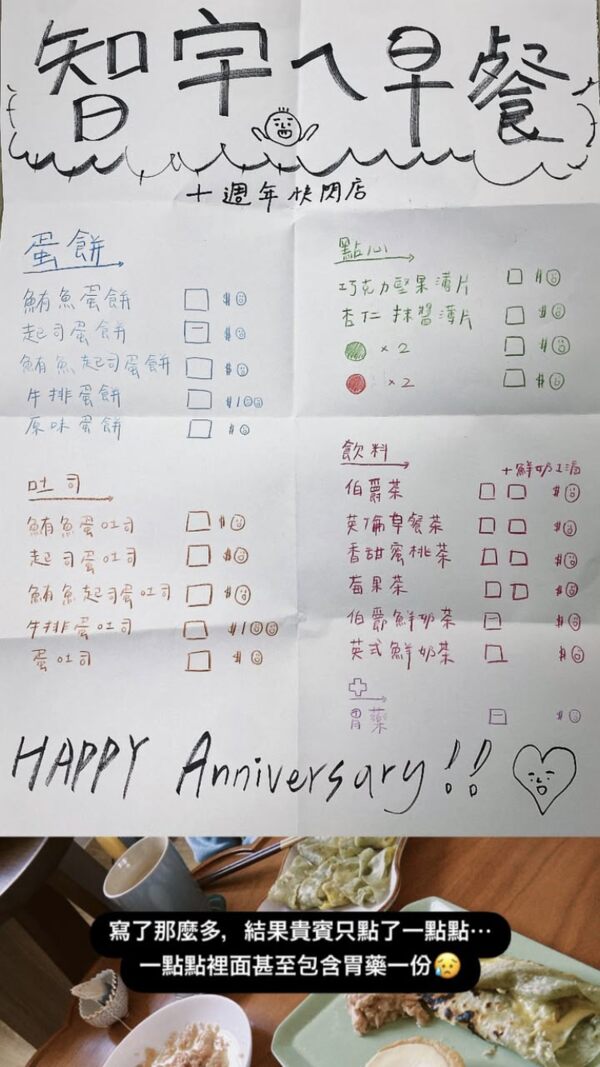 智宇ㄟ早餐
十週年快閃店
蛋餅
鮪魚蛋餅 $0
起司蛋餅 $0
鮪魚起司蛋餅 $0
牛排蛋餅 $100
原味蛋餅 $0
吐司
鮪魚蛋吐司 $0
起司蛋吐司 $0
鮪魚起司蛋吐司 $0
牛排蛋吐司 $100
蛋吐司 $0
點心
巧克力堅果薄片 $0
杏仁抹醬薄片 $0
x2 $0
x2 $0
飲料
+鮮奶1滴
伯爵茶 $0
英倫早餐茶 $0
香甜蜜桃茶 $0
莓果茶 $0
伯爵鮮奶茶 $0
英式鮮奶茶 $0
胃藥 $0
HAPPY Anniversary!!
寫了那麼多，結果貴賓只點了一點點…
一點點裡面甚至包含胃藥一份😥